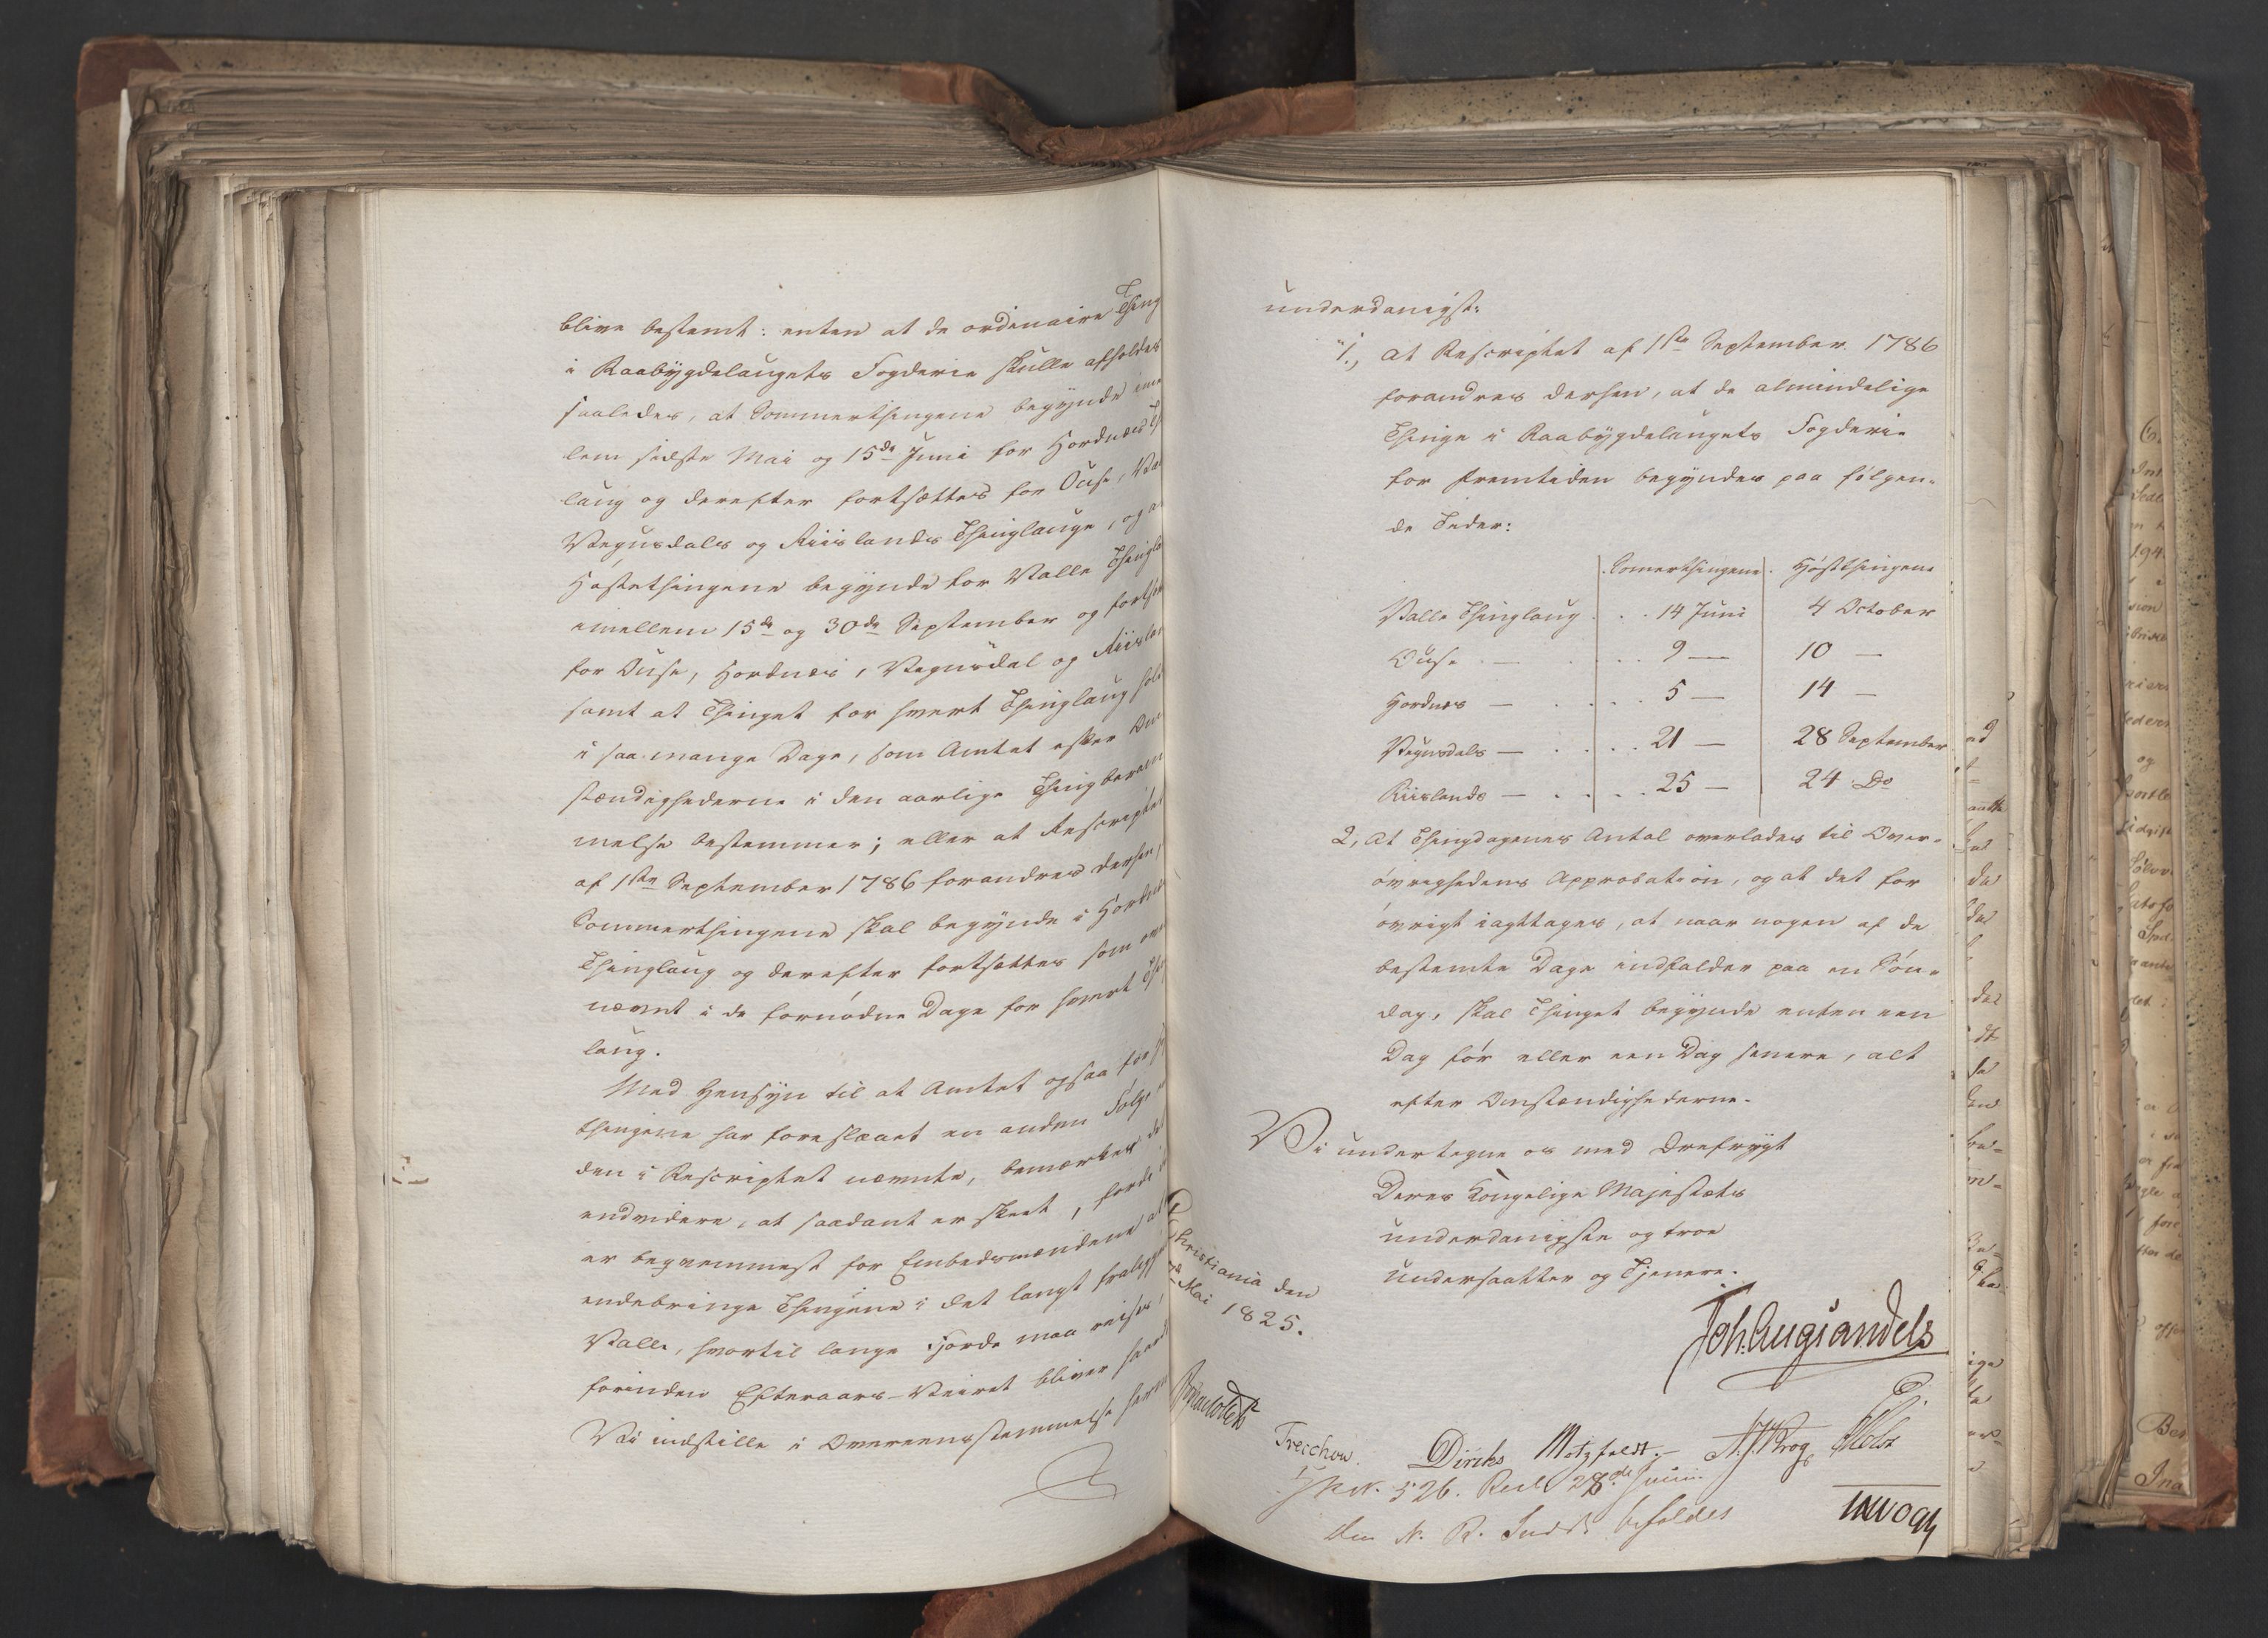 blive bestemt: enten at de ordinaire Thing
i Raabygdelaugets Fogderie skulle afholdes
saaledes, at Sommerthingene begynde imel
lem sidste Mai og 15de Juni for Hordnæs Th
laug og derefter fortsættes for Ouse, Val
Vegusdals og Riislands Thinglauge, og at
Høstethingene begynde for Valle Thingla
imellem 15de og 30de September og fortsæt
for Ouse, Hordnæs, Vegusdal og Riislan
samt at Thinget for hvert Thinglaug hold
i saa mange Dage, som Amtet efter Om
stændighederne i den aarlige Thingberam
melse bestemmer; eller at Rescriptet
af 1ste September 1786 forandres derhen,
Sommerthingene skal begynde i Hordnæs
Thinglaug og derefter fortsættes som oven
nævnt i de fornødne Dage for hvert Thing
laug.
Med Hensyn til at Amtet ogsaa for
thingene har foreslaaet en anden Følge
den i Rescriptet nævnte, bemærkes det
endvidere, at saadant er skeet, fordi
er beqvemmest for Embedsmændene at
endebringe Thingene i det langt fraliggen
Valle, hvortil lange Fjorde maa reises,
forinden Efteraars-Veiret bliver haard
Vi indstille i Overeensstemmelse herm
underdanigst:
"1., at Rescriptet af 1ste September 1786
forandres derhen, at de almindelige
Thinge i Raabygdelaugets Fogderie
for Fremtiden begyndes paa følgen-
de Tider:
Somerthingene. Høstthingene
Valle Thinglaug . . 14 Juni 4 October
Ouse — . . . 9 — 10 —
Hordnæs — . . . 5 — 14 —
Vegusdals — . . . 21 — 28 September
Riislands — . . . 25 — 24 Do
2, at Thingdagenes Antal overlades til Over-
øvrighedens Approbation, og at det for
øvrigt iagttages, at naar nogen af de
bestemte Dage indfalder paa en Søn-
dag, skal Thinget begynde enten een
Dag før eller een Dag senere, alt
efter Omstændighederne.
Vi undertegne os med Ærefrygt
Deres Kongelige Majestæts
underdanigste og troe
Undersaatter og Tjenere.
Christiania den
Mai 1825.
Joh. Aug. Sandels
Treschow. Diriks Motzfeldt. A. J. Krog
No. 526. Resl. 28de Juni
Den N. R. Indst. bifaldes